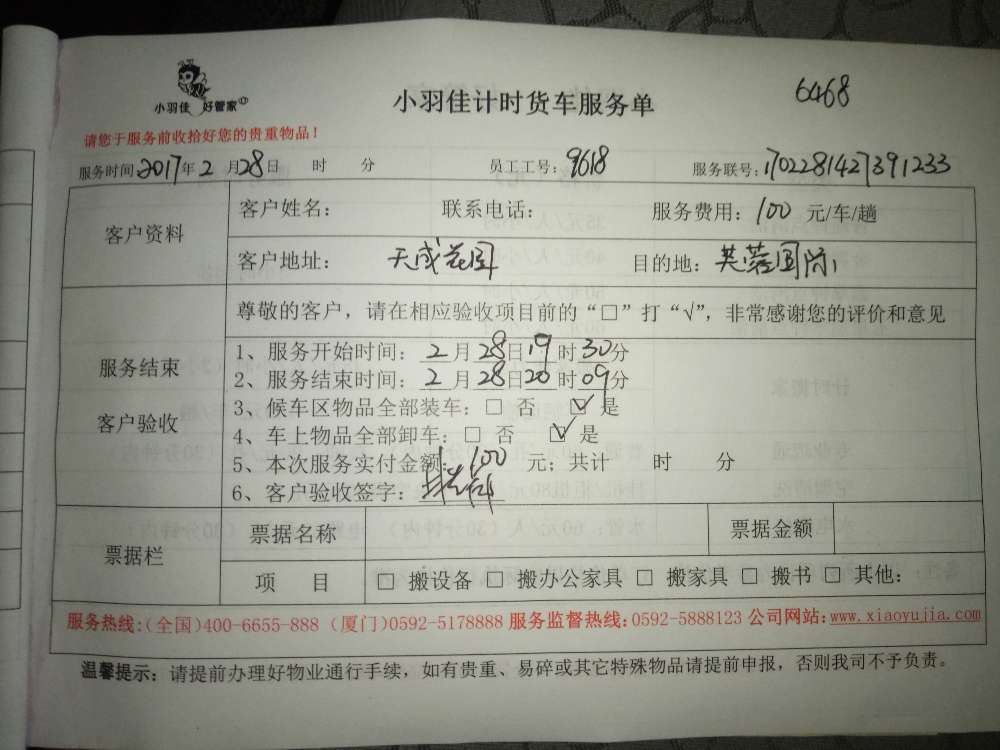 小羽佳 好管家
小羽佳计时货车服务单
6468
请您于服务前收拾好您的贵重物品！
服务时间 2017年 2 月 28日 时 分 员工工号：9618 服务联号：1702281427391233
客户资料
客户姓名： 联系电话： 服务费用：100 元/车/趟
客户地址： 天成花园 目的地：芙蓉国际
服务结束
客户验收
尊敬的客户，请在相应验收项目前的“□”打“√”，非常感谢您的评价和意见
1、服务开始时间：2 月 28日 19 时 30分
2、服务结束时间：2 月 28日 20 时 09分
3、候车区物品全部装车：□ 否 ☑ 是
4、车上物品全部卸车：□ 否 ☑ 是
5、本次服务实付金额：100 元；共计 时 分
6、客户验收签字：
票据栏
票据名称 票据金额
项 目 □ 搬设备 □ 搬办公家具 □ 搬家具 □ 搬书 □ 其他：
服务热线：(全国)400-6655-888 (厦门)0592-5178888 服务监督热线：0592-5888123 公司网站：www.xiaoyujia.com
温馨提示：请提前办理好物业通行手续，如有贵重、易碎或其它特殊物品请提前申报，否则我司不予负责。